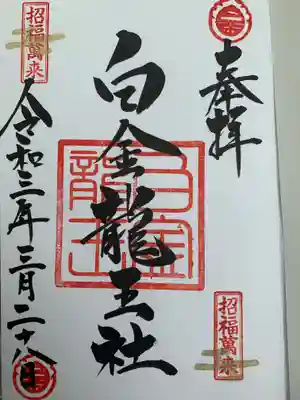 奉拝
白金龍王社
白金
龍王
令和三年三月二十八日
招福萬来
招福萬来